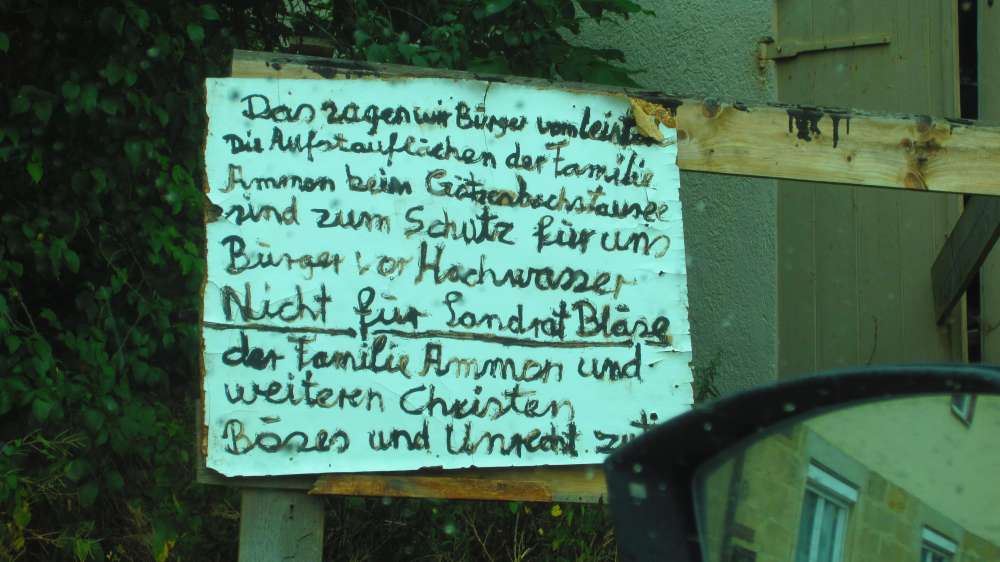 Das zagen wir Bürger vom
Die Aufstauflächen der Familie
Ammon beim Götzenbachstausee
sind zum Schutz für uns
Bürger vor Hochwasser
Nicht für Landrat Bläse
der Familie Ammon und
weiteren Christen
Böses und Unrecht